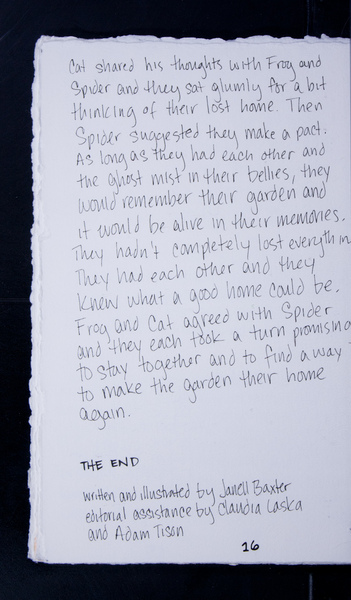 Cat shared his thoughts with Frog and
Spider and they sat glumly for a bit
thinking of their lost home. Then
Spider suggested they make a pact.
As long as they had each other and
the ghost mist in their bellies, they
would remember their garden and
it would be alive in their memories.
They hadn't completely lost everythin
They had each other and they
knew what a good home could be.
Frog and Cat agreed with Spider
and they each took a turn promising
to stay together and to find a way
to make the garden their home
again.
THE END
written and illustrated by Janell Baxter
editorial assistance by Claudia Laska
and Adam Tison
16